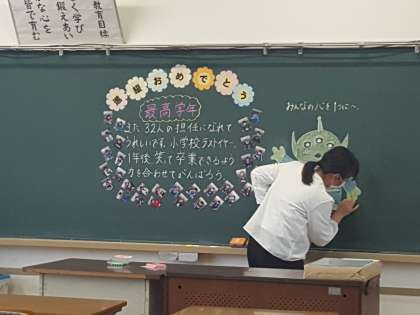 教育目標
く学び
鍛えあい
な心を
皆で育む
進級おめでとう
最高学年
また32人の担任になれて
うれしいです。小学校ラストイヤー、
1年後 笑って卒業できるよう
力を合わせてがんばろう。
みんなの心を1つに〜。